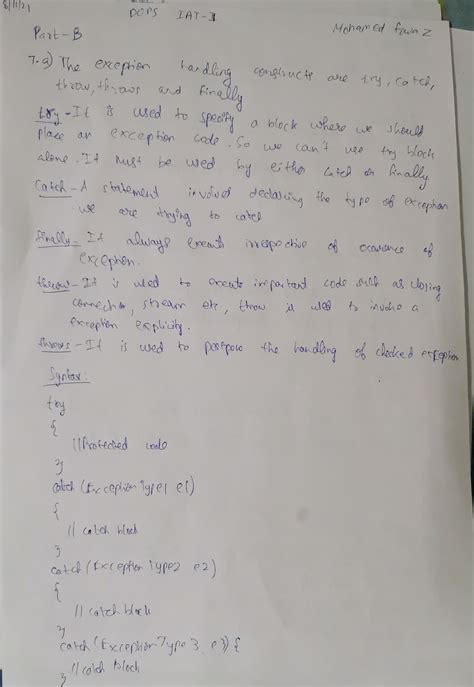 8/11/21
OOPS IAT-I
Mohamed Fawaz Z
Part-B
7.a) The exception handling constructs are try, catch,
throw, throws and finally
try - It is used to specify a block where we should
place an exception code. So we can't use try block
alone. It must be used by either catch or finally
Catch - A statement involved declaring the type of exception
we are trying to catch
finally - It always execute irrespective of occurance of
exception.
throw - It is used to execute important code such as closing
connection, stream etc, throw is used to invoke a
exception explicity.
throws - It is used to postpone the handling of checked exception
Syntax:
try
{
//Protected code
}
catch (ExceptionType1 e1)
{
// catch block
}
catch (ExceptionType2 e2)
{
// catch block
}
catch (ExceptionType 3 e3) {
// catch block
}